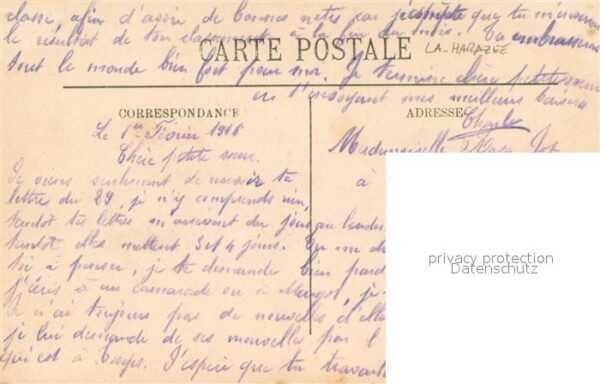 classe, afin d'avoir de bonnes notes car j'compte que tu m'enverras
le résultat de ton classement à la fin du mois. Tu embrasseras
tout le monde bien fort pour moi. Je termine chère petite sœur
en t'envoyant mes meilleurs baisers
CARTE POSTALE
LA-HARAZEE
CORRESPONDANCE
ADRESSE
Charles
Le 1er Février 1916
Chère petite sœur.
Je viens seulement de recevoir ta
lettre du 29, je n'y comprends rien,
tantôt tes lettres m'arrivent du jour au lendem
tantôt elles mettent 3 et 4 jours. Tu me d
à penser, je te demande bien pard
j'écris à un camarade ou à Margot, je
n'ai toujours pas de nouvelles d'elle
je lui demande de ses nouvelles par l
qui est à J'espère que tu travaill
Mademoiselle
à
privacy protection
Datenschutz